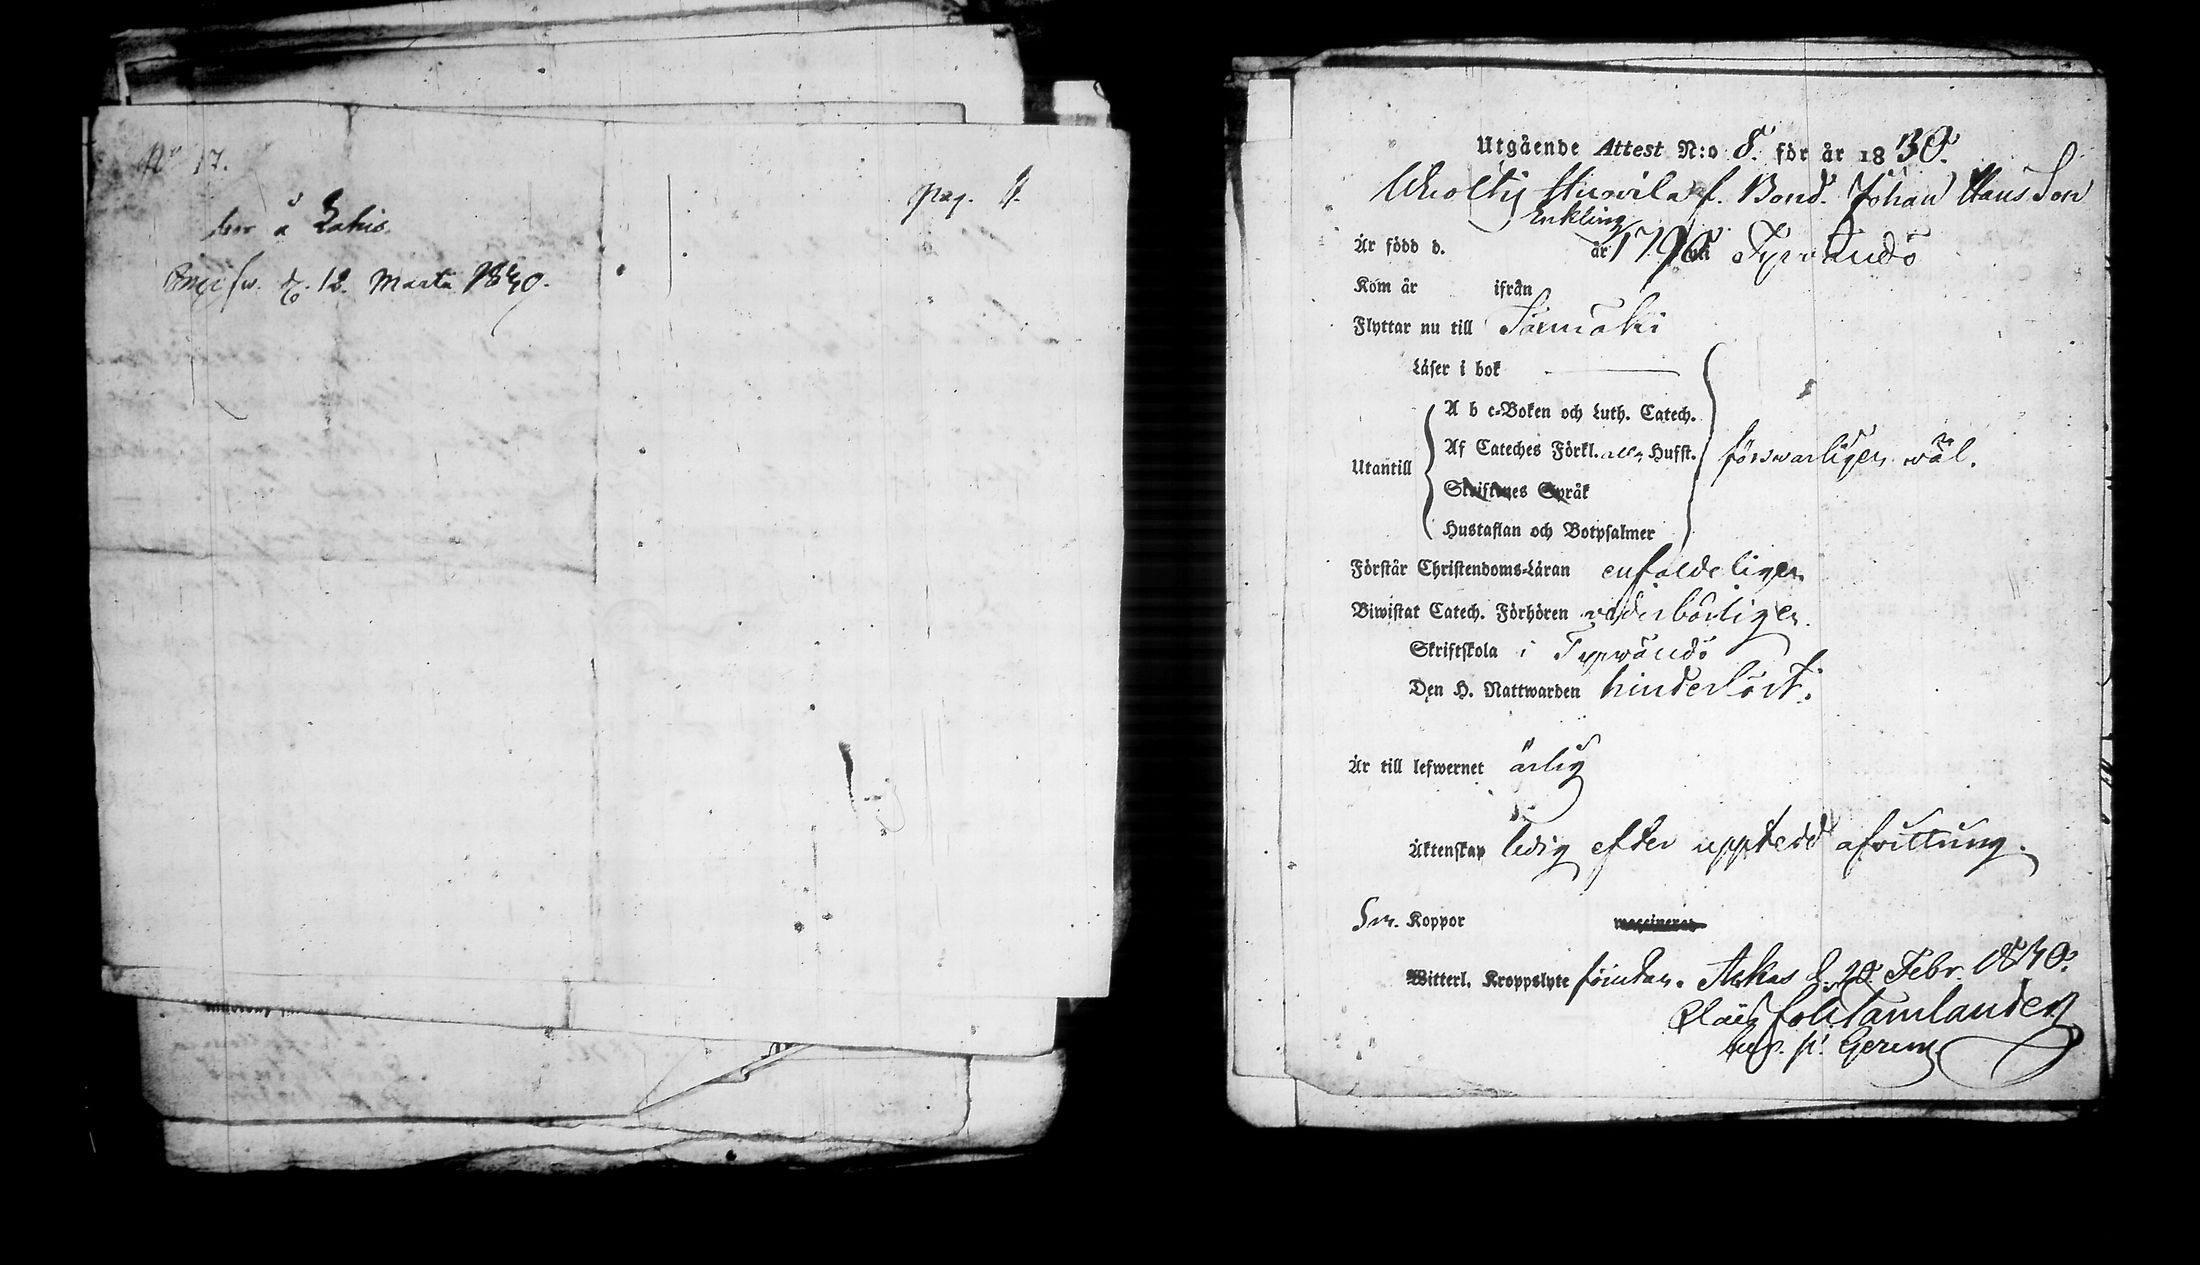 No 17.
pag. 4.
bor å Lahis
d. 12. Martii 1830.
Utgående Attest N:o 8. för år 1830.
f. Bond. Johan Hans Son
Enkling
Är född d. år 1796 Tyrvändö
Kom år ifrån
Flyttar nu till Sarmäki
Läser i bok
A b c-Boken och Luth. Catech.
Af Cateches Förkl. Husst.
Utantill
försvarligen wäl.
Skriftenes Språk
Hustaflan och Botpsalmer
Förstår Christendoms-Läran enfaldeligen
Biwistat Catech. Förhören wederbörligen.
Skriftskola i Tyrwändö
Den H. Nattwarden hinderlöst.
Är till lefwernet ärlig
Äktenskap ledig efter uppteed afvittning.
Koppor vaccinerad
Witterl. Kroppslyte Akas d. 20. Febr. 1830.